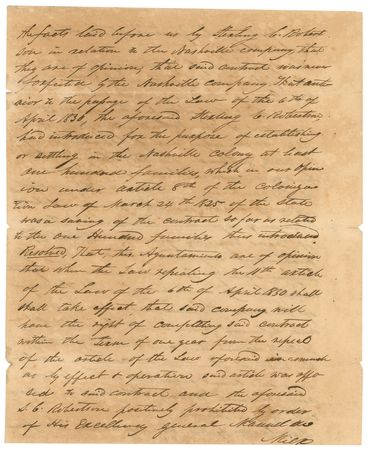 the facts laid before us by Sterling C. Robert
son in relation to the Nashville company, that
they are of opinion, that said contract was never
forfeited by the Nashville company that ante
rior to the passage of the Law of the 6th of
April 1830, the aforesaid Sterling C. Robertson
had introduced for the purpose of establishing
or settling in the Nashville colony at least
one hundred families, which in our opin
ion under article 8th of the Coloniza
tion Law of March 24th 1825 of the State
was a saving of the contract so far as related
to the one Hundred families thus introduced
Resolved That, this Ayuntamiento are of opinion
that when the Law repealing the 11th article
of the Law of the 6th of April 1830 shall
shall take effect, that said company will
have the right of completing said contract
within the term of one year from the repeal
of the article of the Law aforesaid in as much
as by effect & operation said article was
ed to said contract and the aforesaid
S. C. Robertson positively prohibited by order
of His Excellency general Manuel de